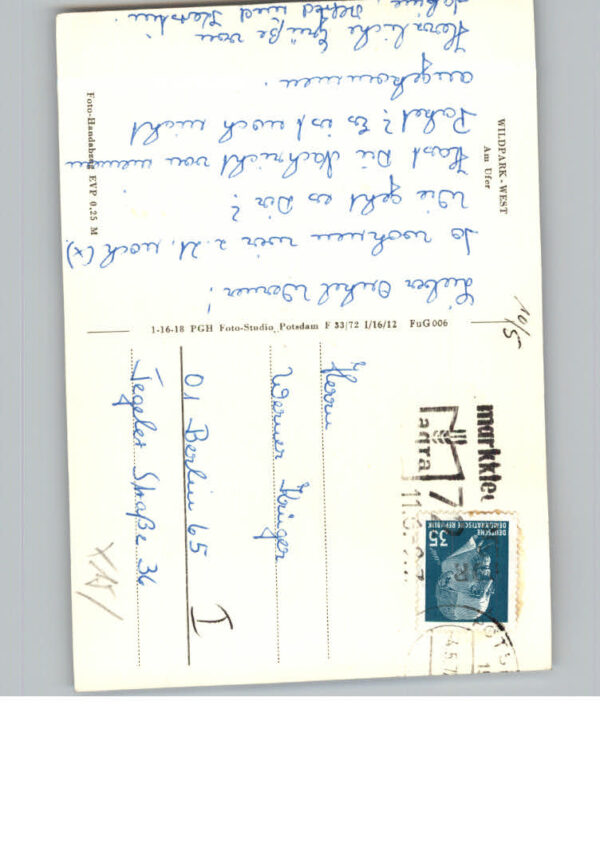 WILDPARK-WEST
Am Ufer
Lieber Onkel Werner!
So wohnen wir z. Zt. noch (x).
Wie geht es Dir?
Hast Du Nachricht von meinem
Paket? Es ist noch nicht
angekommen.
Herzliche Grüße von
und Kerstin
Foto-Handabzug EVP 0,25 M
1-16-18 PGH Foto-Studio Potsdam F 33/72 I/16/12 FuG 006
10/5
Herrn
Werner Krüger
01 Berlin 65
Tegeler Straße 36
I
markklee
agra
72
11.6.
DEUTSCHE
DEMOKRATISCHE REPUBLIK
35
POTS
-4.5.7